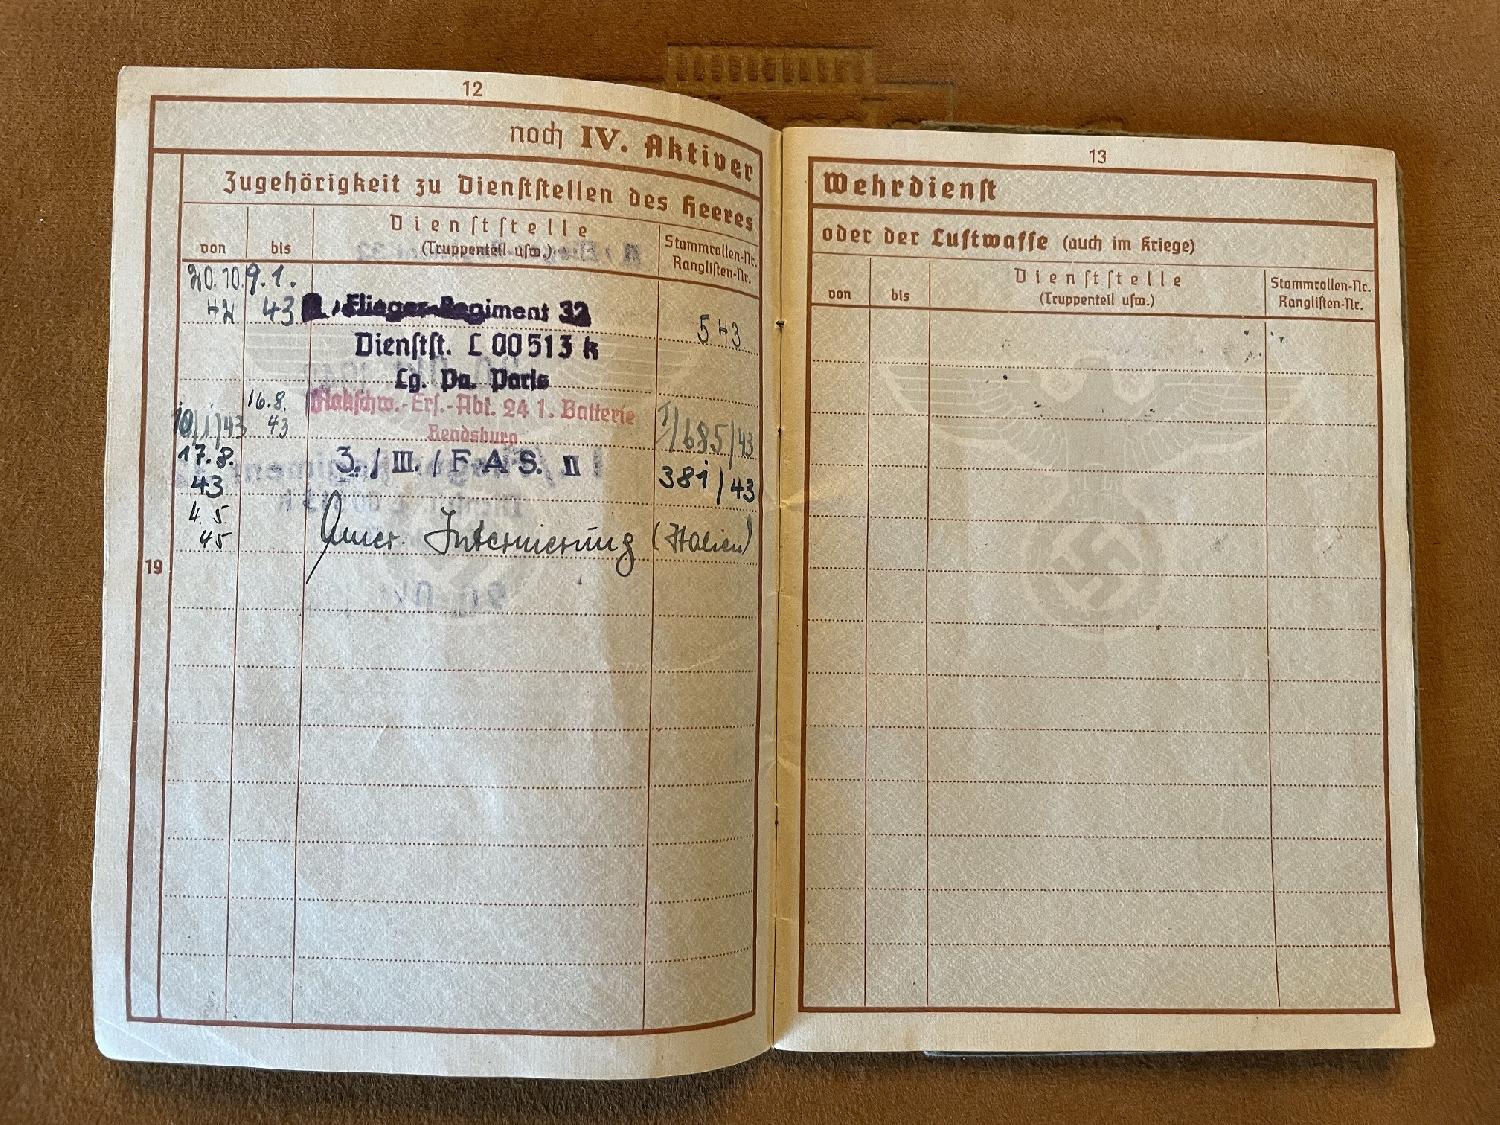 12
noch IV. Aktiver
Zugehörigkeit zu Dienststellen des Heeres
von
bis
Dienststelle
(Truppenteil usw.)
Stammrollen-Nr.
Ranglisten-Nr.
20.10. 9.1.
42 43
Flieger-Regiment 32
543
Dienstst. L 00513 k
Lg. Pa. Paris
16.8.
Flakschw.-Ers.-Abt. 24 1. Batterie
10/1/43 43
1/685/43
Rendsburg
17.8.
43
3. / III. / F. A. S. II
381/43
4 5
45
Amer Internierung (Italien)
19
13
Wehrdienst
oder der Luftwaffe (auch im Kriege)
von
bis
Dienststelle
(Truppenteil usw.)
Stammrollen-Nr.
Ranglisten-Nr.